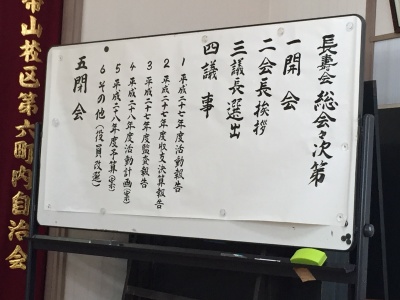 長寿会 総会々次第
一 開会
二 会長挨拶
三 議長選出
四 議事
1 平成二十七年度活動報告
2 平成二十七年度収支決算報告
3 平成二十七年度監査報告
4 平成二十八年度活動計画(案)
5 平成二十八年度予算(案)
6 その他(役員改選)
五 閉会
帯山校区第六町内自治会